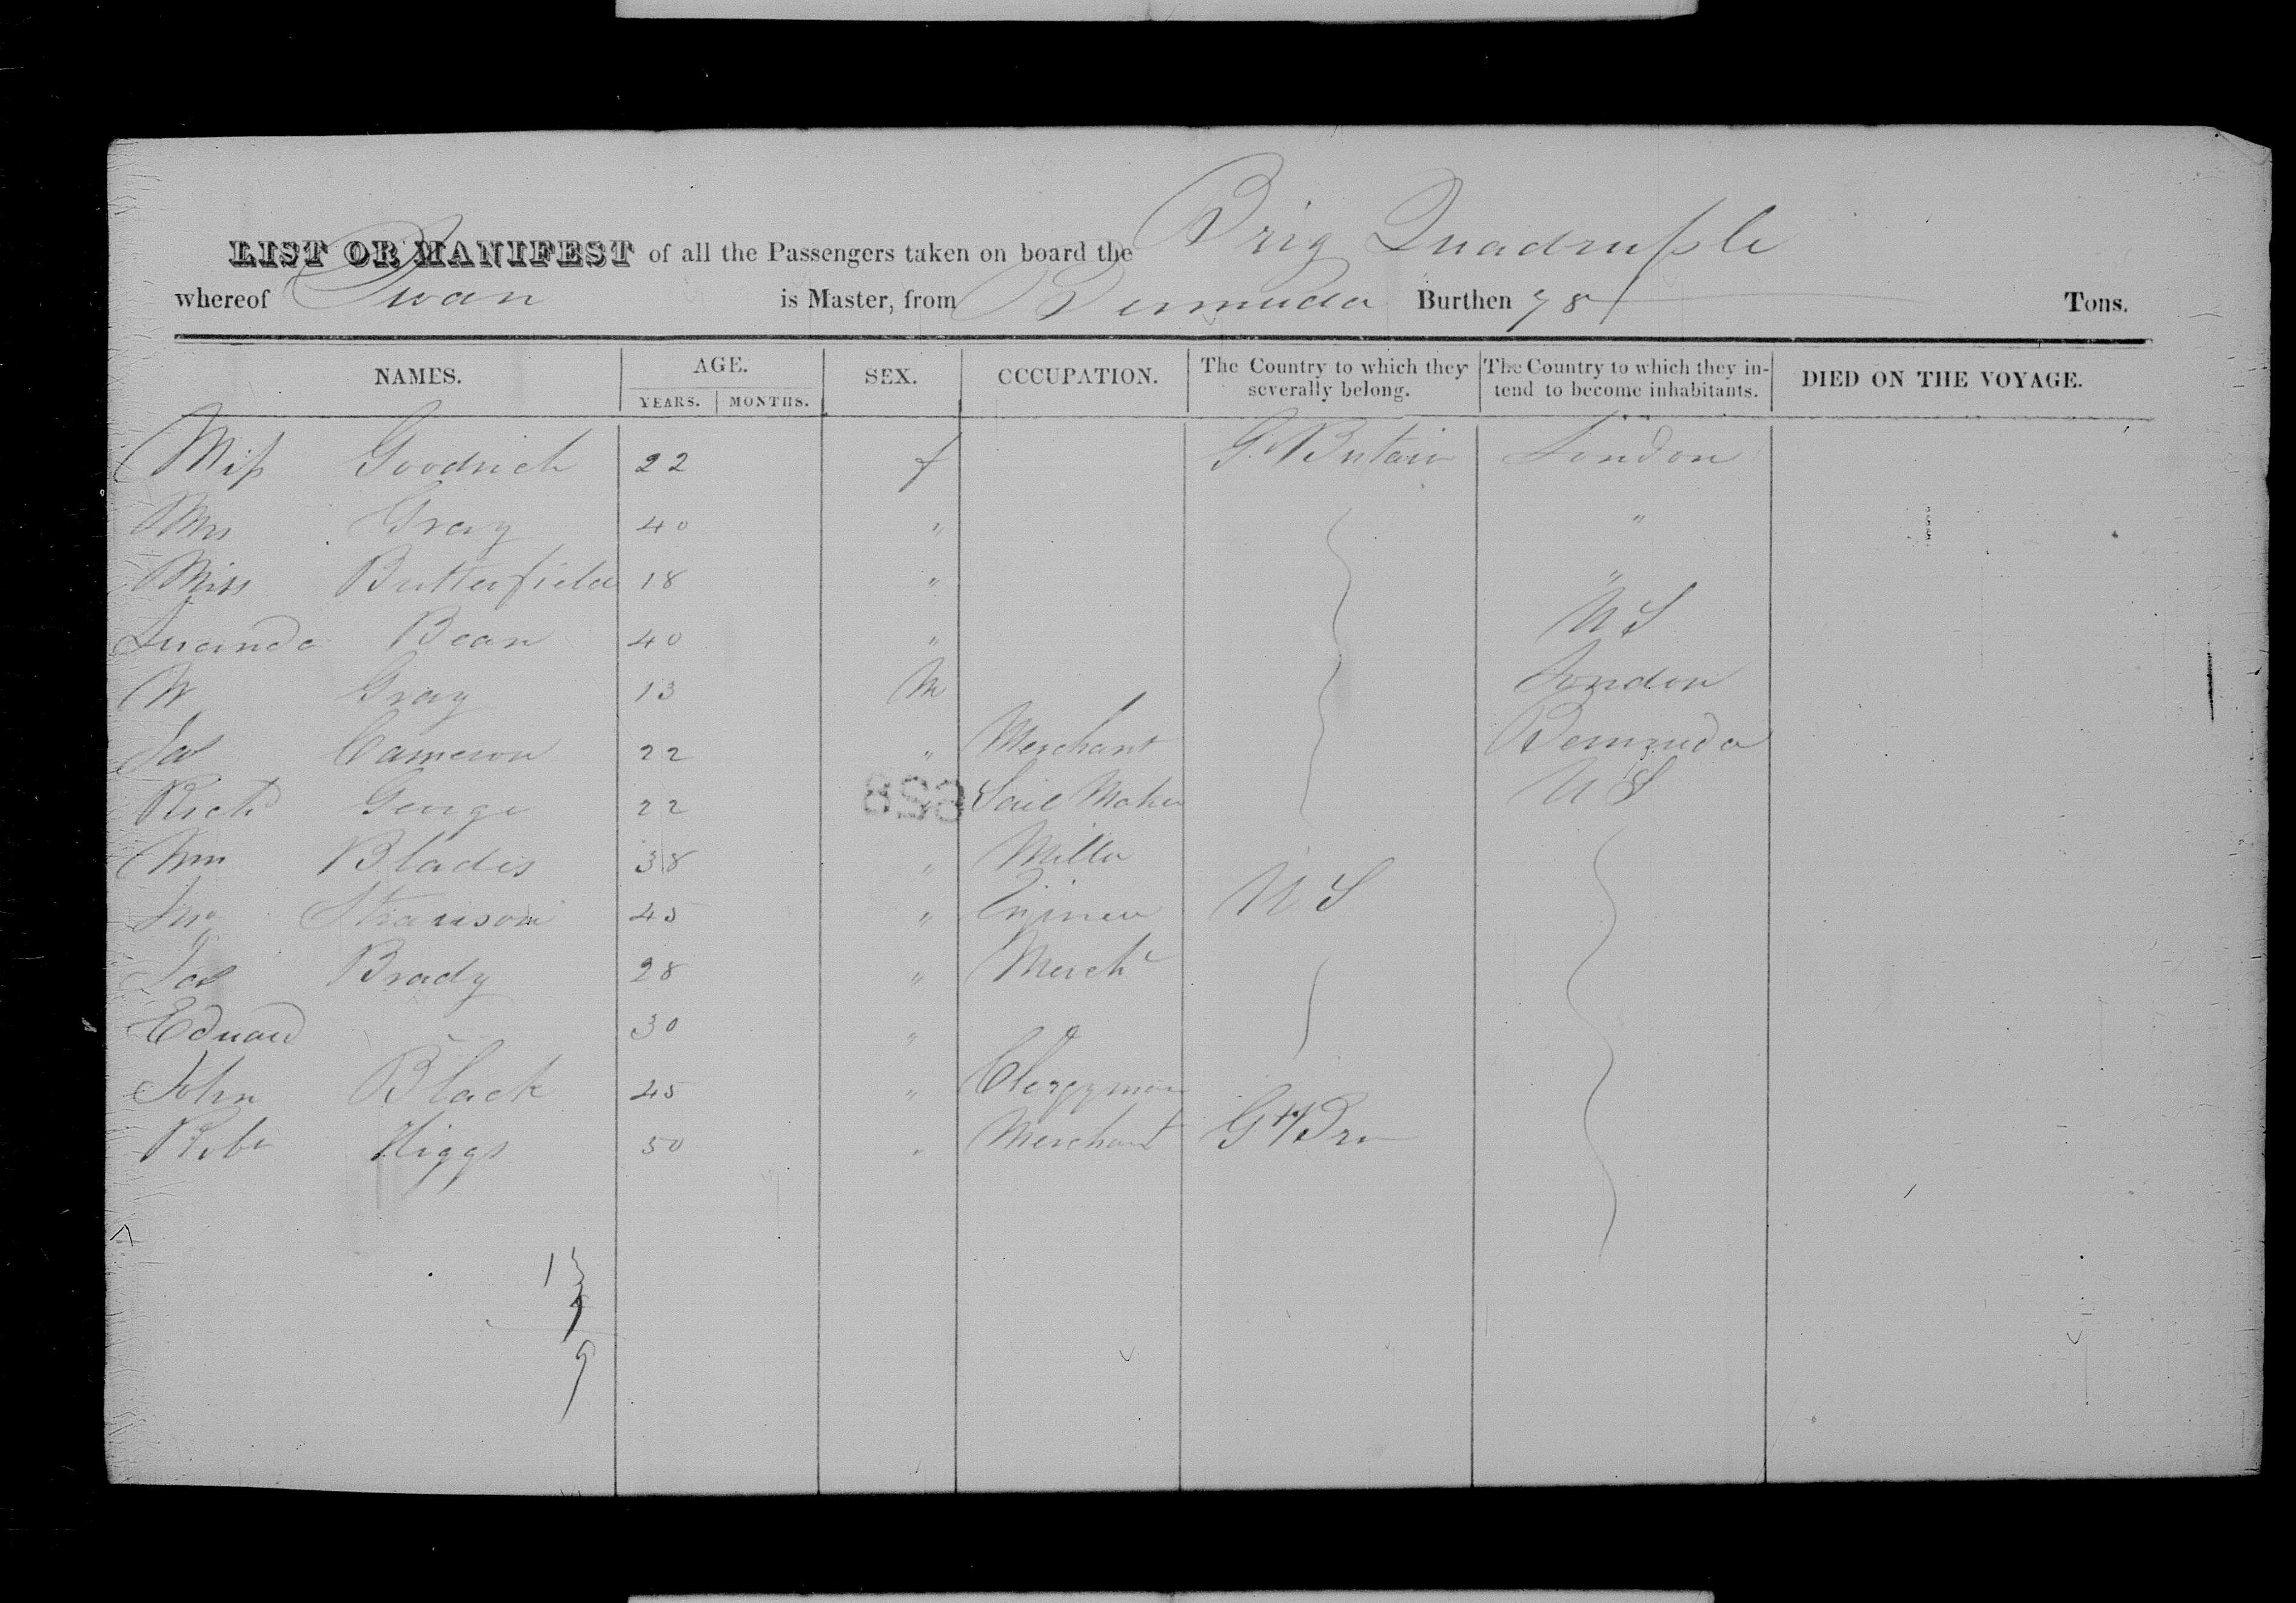 LIST OR MANIFEST of all the Passengers taken on board the Brig Quadruple
whereof Swan is Master, from Bermuda Burthen 78 Tons.
NAMES. AGE. SEX. OCCUPATION. The Country to which they severally belong. The Country to which they intend to become inhabitants. DIED ON THE VOYAGE.
YEARS. MONTHS.
Miss Goodrich 22 f Gt Britain London
Mrs Gray 40 " "
Miss Butterfield 18 " "
Bean 40 " U S
W Gray 13 M London
Jas Cameron 22 " Merchant Bermuda
Richd George 22 " Sail Maker U S
Wm Blades 38 " Miller
Jno 45 " Enjineer U S
Jas Brady 28 " Mercht
Edward 30 "
John Black 45 " Clergyman
Robt Higgs 50 " Merchant Gt Brn
628
13
9